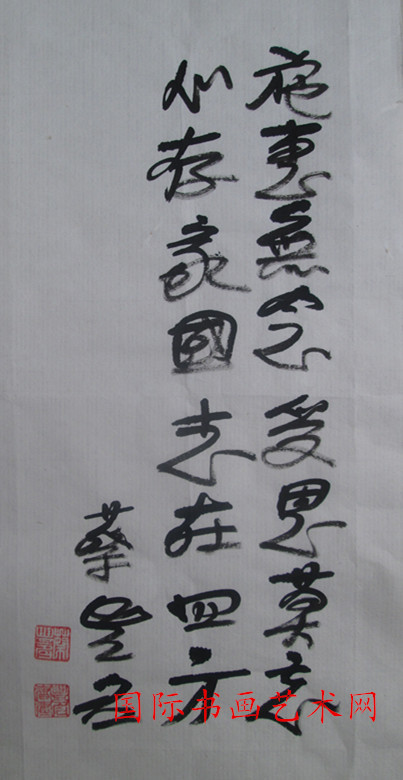 施惠無念受恩莫忘
心存家國志在四方
蔡
国际书画艺术网